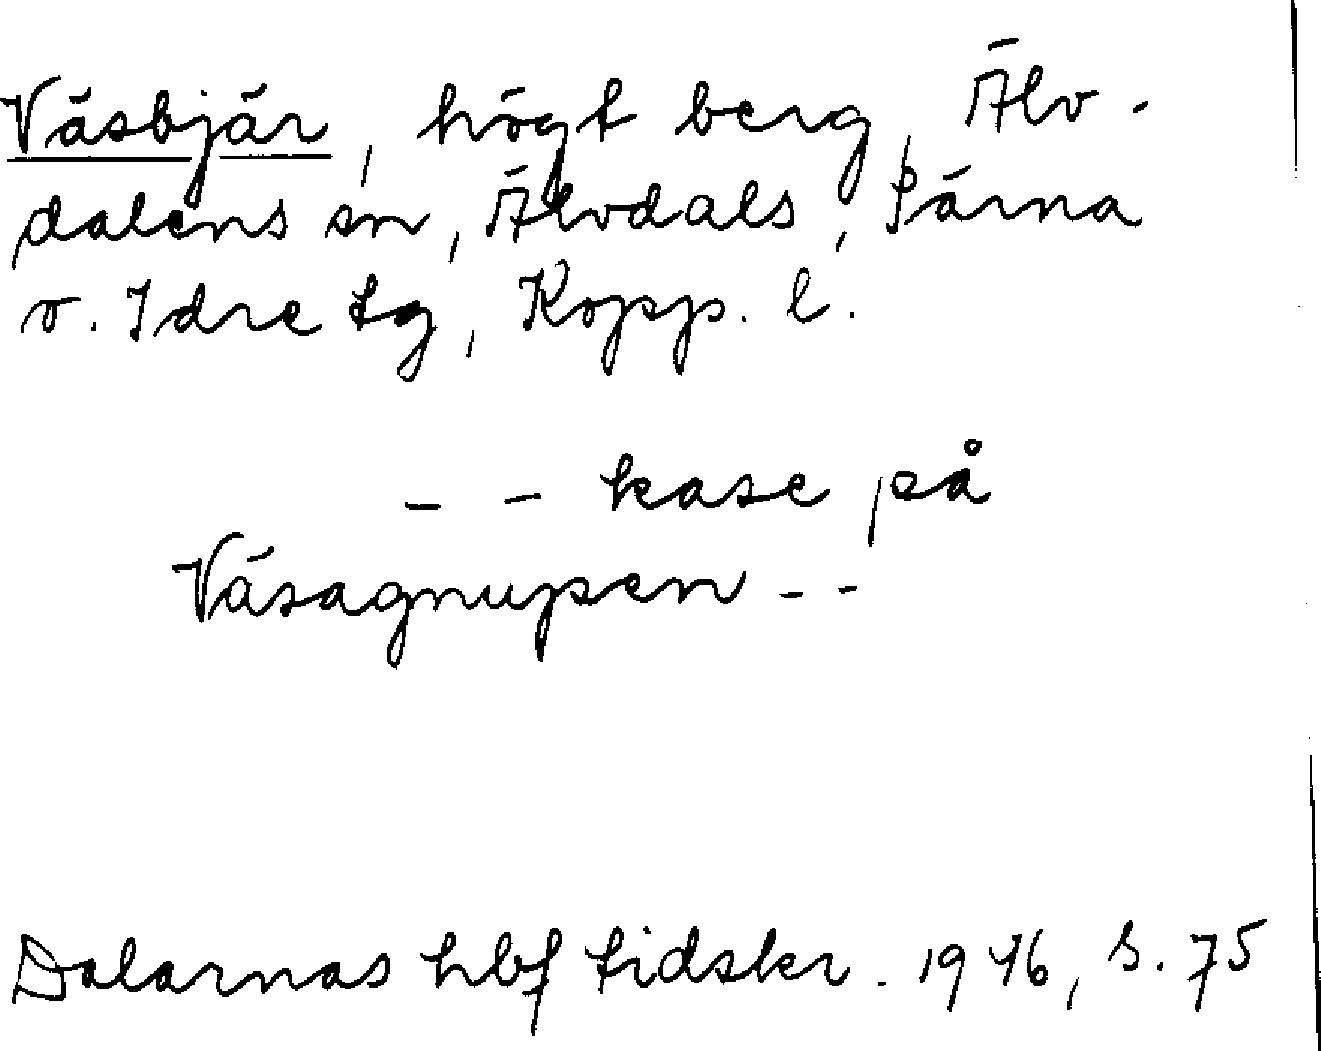 Väsbjär, högt berg, Älv-
dalens sn, Älvdals, Särna
o. Idre tg, Kopp. l.
- - kase på
Väsagnupen - -
Dalarnas hbf tidskr. 1946, s. 75